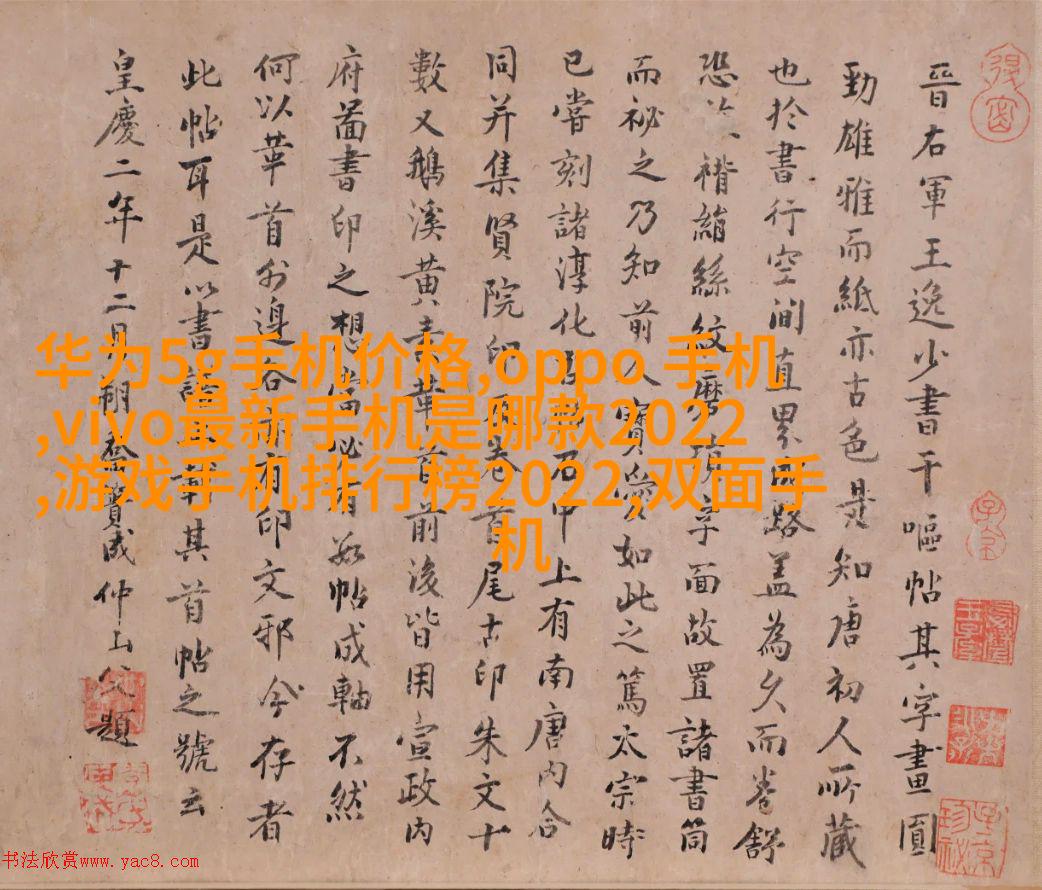 晉右軍王逸少書干嘔帖其字畫圓
勁雄雅而紙亦古色是知唐初人所藏
也於書行空間直界路蓋為久而卷舒
恐褙絹絲紋字面故置諸書筒
而祕之乃知前人寶愛如此之篤太宗時
已嘗刻諸淳化石中上有南唐內合
同并集賢院印卷首尾古印朱文十
數又鵝溪黃華首前後皆用宣政內
府啚書印之想當必帖成軸不然
何以華首外邊各有印文邪今存者
此帖耳是以書其首帖之號云
皇慶二年十二月朔喬簣成仲山父題
华为5g手机价格,oppo 手机
,vivo最新手机是哪款2022
,游戏手机排行榜2022,双面手
机
书法欣赏www.yac8.com